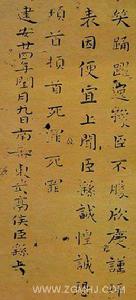 笑踴躍逸豫臣不勝欣慶謹
表因便宜上聞臣繇誠惶誠
頓首頓首死罪死罪
建安廿四年閏月九日南蕃東武亭侯臣繇上